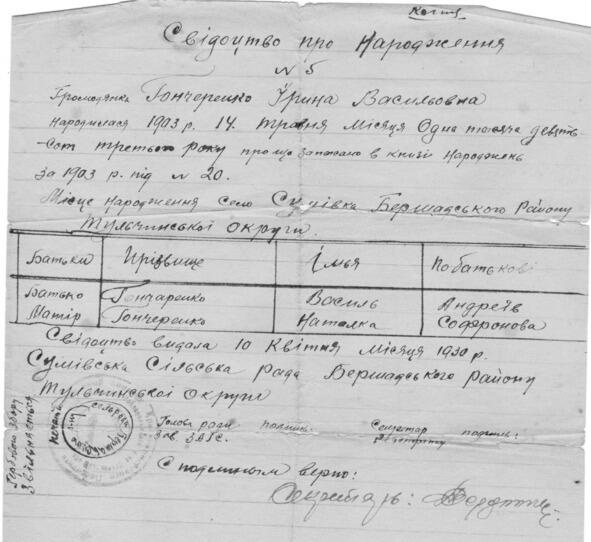 Копия
Свідоцтво про Народження
№ 5
Громодянка Гончеренко Ірина Васильовна
народилася 1903 р. 14. травня місяця одна тисяча девять
-сот третього року про що записано в книзі народжень
за 1903 р. під № 20.
Місце народження село Сумівка Бершадського Району
Тульчинської округи.
Батьки Прізвище Імья По батькові
Батько Гончаренко Василь Андреїв
Матір Гончеренко Наталка Софронова
Свідоцтво видала 10 Квітня місяця 1930 р.
Сумівська Сільська Рада Бершадського Району
Тульчинської округи
Голова ради подпись. Секретар подпись:
Зав. ЗАГС.
Гербового збору
Звільняється
печать
С подлинным верно:
Секретарь: